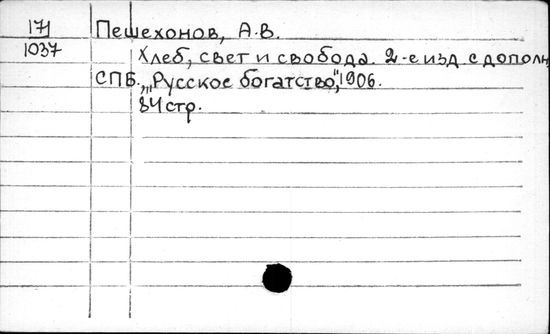 171 Пешехонов, А.В.
1037 Хлеб, свет и свобода. 2-е изд. с дополн.
СПБ. „Русское богатство", 1906.
84 стр.